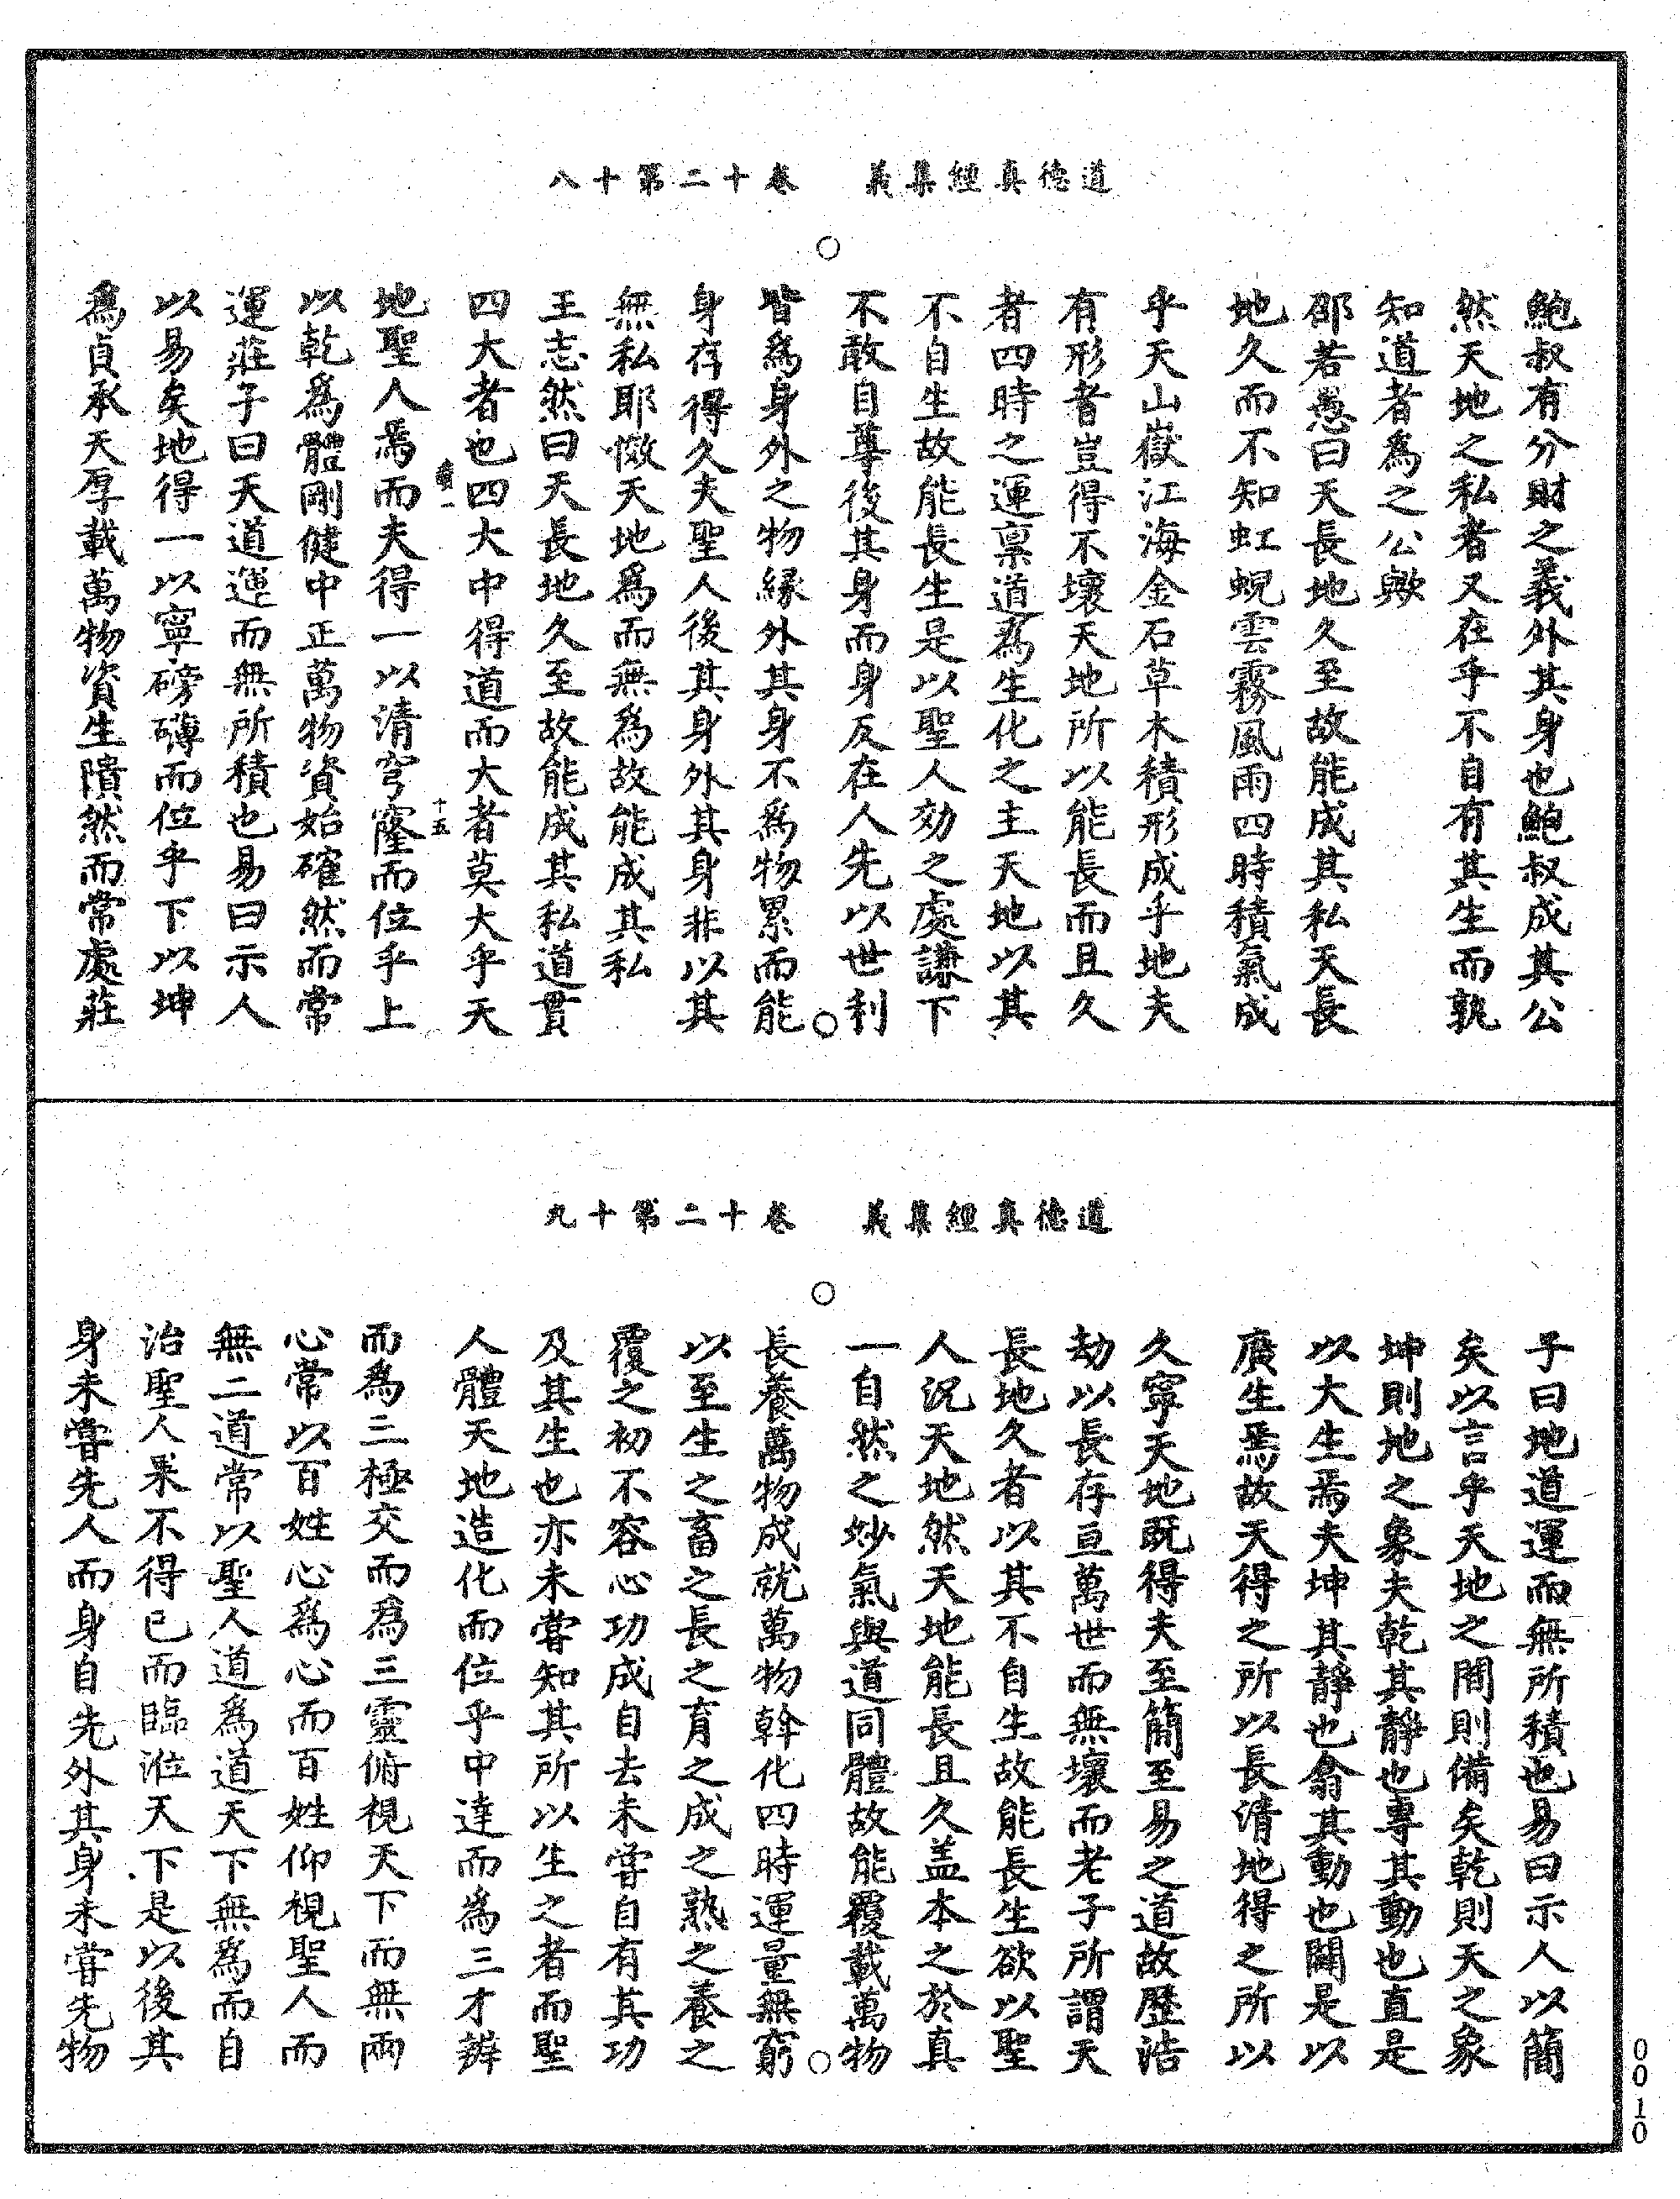 道德真經集義　卷十二第十八
鮑叔有分財之義外其身也鮑叔成其公
然天地之私者又在乎不自有其生而孰
知道者為之公歟
邵若愚曰天長地久至故能成其私天長
地久而不知虹蜺雲霧風雨四時積氣成
乎天山嶽江海金石草木積形成乎地夫
有形者豈得不壞天地所以能長而且久
者四時之運稟道為生化之主天地以其
不自生故能長生是以聖人効之處謙下
不敢自尊後其身而身反在人先以世利
皆為身外之物緣外其身不為物累而能
身存得久夫聖人後其身外其身非以其
無私耶儌天地為而無為故能成其私
王志然曰天長地久至故能成其私道貫
四大者也四大中得道而大者莫大乎天
十五
地聖人焉而夫得一以清穹窿而位乎上
以乾為體剛健中正萬物資始確然而常
運莊子曰天道運而無所積也易曰示人
以易矣地得一以寧磅礴而位乎下以坤
為貞承天厚載萬物資生隤然而常處莊
道德真經集義　卷十二第十九
子曰地道運而無所積也易曰示人以簡
矣以言乎天地之間則備矣乾則天之象
坤則地之象夫乾其靜也專其動也直是
以大生焉夫坤其靜也翕其動也闢是以
廣生焉故天得之所以長清地得之所以
久寧天地既得夫至簡至易之道故歷浩
劫以長存亘萬世而無壞而老子所謂天
長地久者以其不自生故能長生欲以聖
人況天地然天地能長且久盖本之於真
一自然之妙氣與道同體故能覆載萬物
長養萬物成就萬物斡化四時運量無窮
以至生之畜之長之育之成之熟之養之
覆之初不容心功成自去未嘗自有其功
及其生也亦未嘗知其所以生之者而聖
人體天地造化而位乎中達而為三才辨
而為三極交而為三靈俯視天下而無兩
心常以百姓心為心而百姓仰視聖人而
無二道常以聖人道為道天下無為而自
治聖人果不得已而臨涖天下是以後其
身未嘗先人而身自先外其身未嘗先物
0010